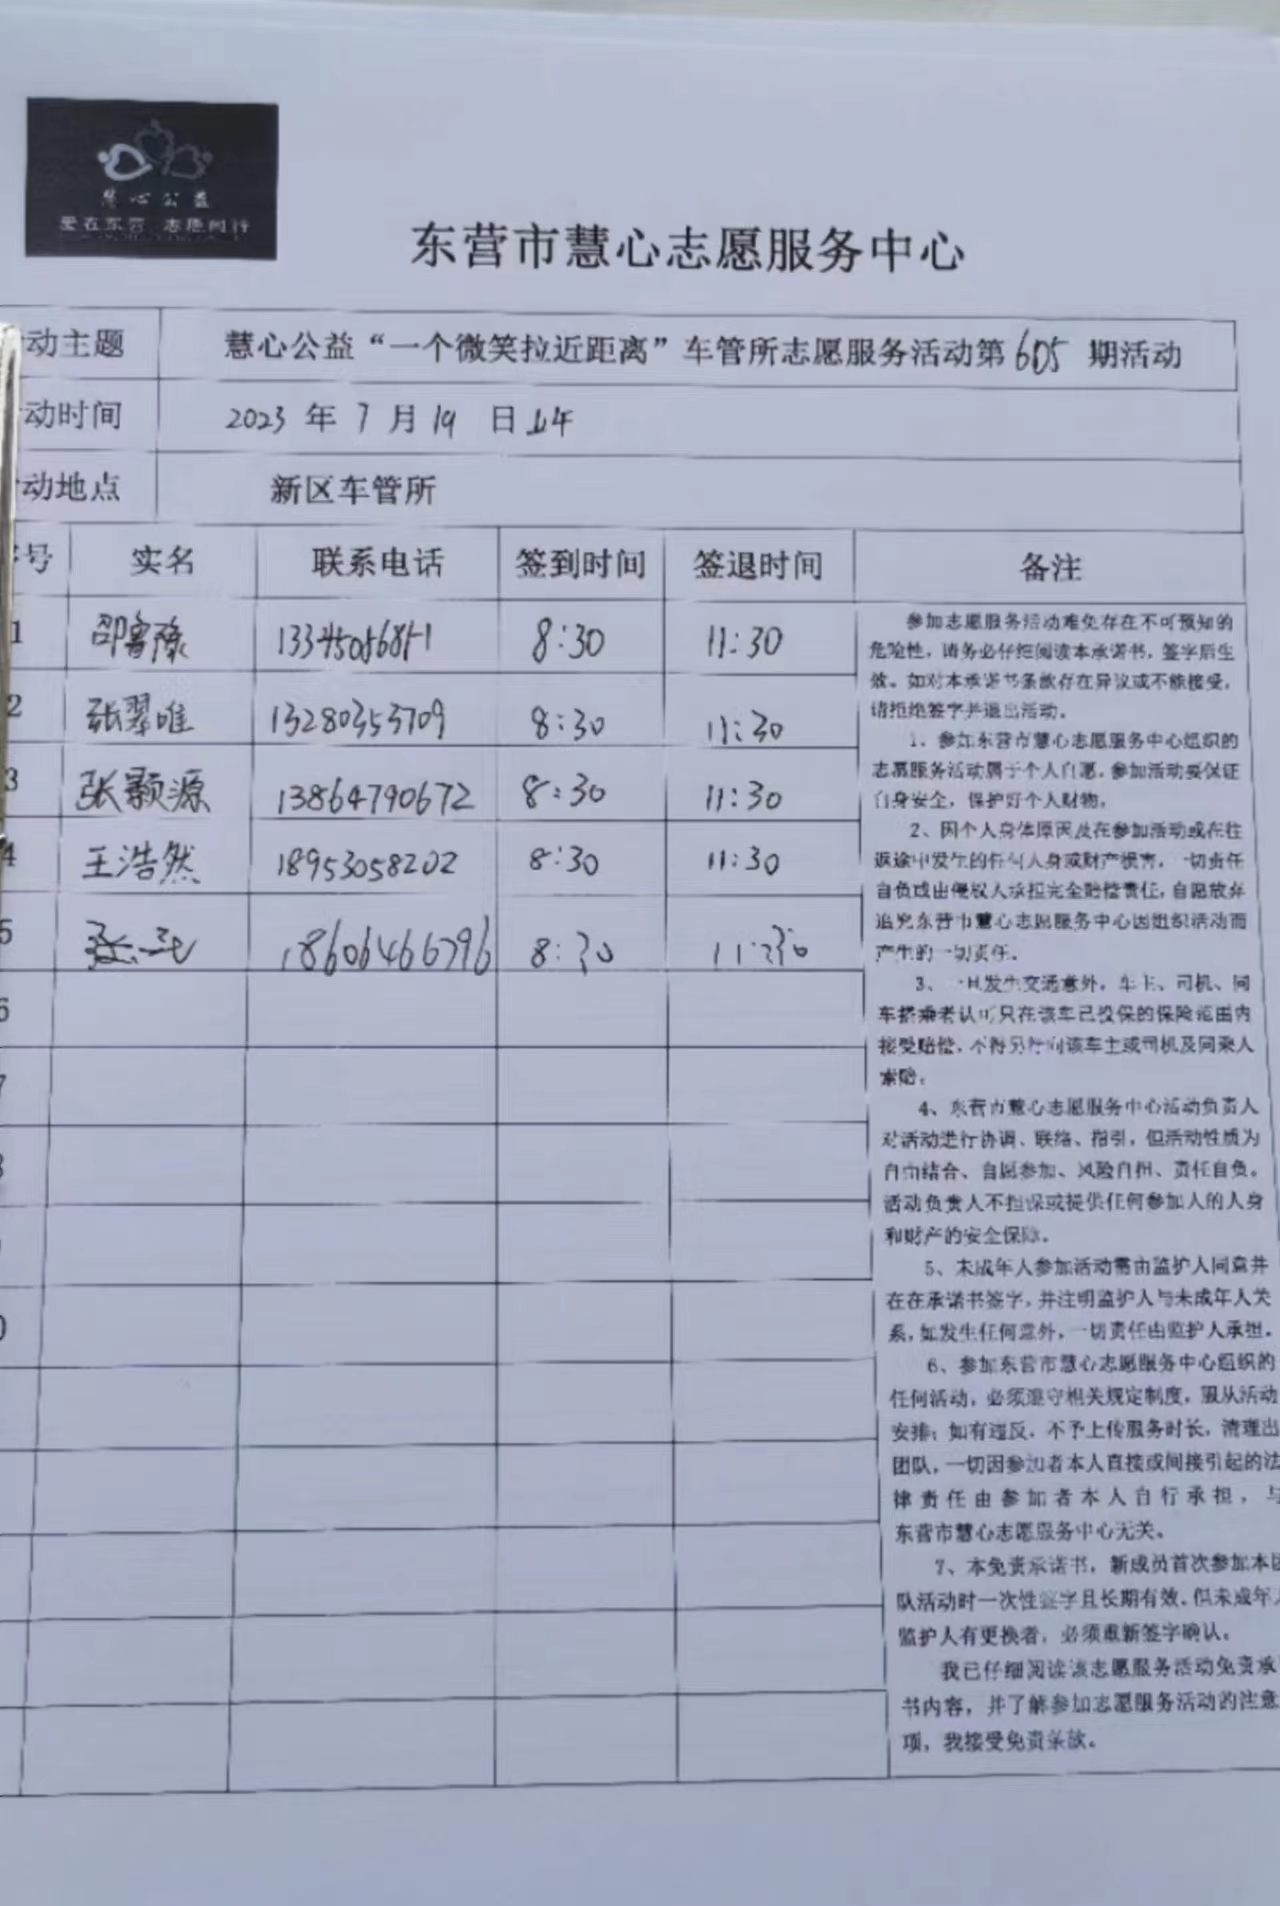 慧心公益
爱在东营 志愿同行
东营市慧心志愿服务中心
动主题 慧心公益“一个微笑拉近距离”车管所志愿服务活动第605期活动
动时间 2023年7月19日上午
动地点 新区车管所
号 实名 联系电话 签到时间 签退时间 备注
1 邵 8:30 11:30
2 张翠唯 13280353709 8:30 11:30
3 张颢源 13864790672 8:30 11:30
4 王浩然 18953058202 8:30 11:30
5 18606466796 8:30 11:30
6
7
8
0
参加志愿服务活动难免存在不可预知的
危险性，请务必仔细阅读本承诺书，签字后生
效。如对本承诺书条款存在异议或不能接受，
请拒绝签字并退出活动。
1、参加东营市慧心志愿服务中心组织的
志愿服务活动属于个人自愿，参加活动要保证
自身安全，保护好个人财物。
2、因个人身体原因及在参加活动或在往
返途中发生的任何人身或财产损害，一切责任
自负或由侵权人承担完全赔偿责任，自愿放弃
追究东营市慧心志愿服务中心因组织活动而
产生的一切责任。
3、一旦发生交通意外，车主、司机、同
车搭乘者认可只在该车已投保的保险范围内
接受赔偿，不得另行向该车主或司机及同乘人
索赔；
4、东营市慧心志愿服务中心活动负责人
对活动进行协调、联络、指引，但活动性质为
自由结合、自愿参加、风险自担、责任自负。
活动负责人不担保或提供任何参加人的人身
和财产的安全保障。
5、未成年人参加活动需由监护人同意并
在在承诺书签字，并注明监护人与未成年人关
系，如发生任何意外，一切责任由监护人承担。
6、参加东营市慧心志愿服务中心组织的
任何活动，必须遵守相关规定制度，服从活动
安排；如有违反，不予上传服务时长，清理出
团队，一切因参加者本人直接或间接引起的法
律责任由参加者本人自行承担，与
东营市慧心志愿服务中心无关。
7、本免责承诺书，新成员首次参加本团
队活动时一次性签字且长期有效。但未成年人
监护人有更换者，必须重新签字确认。
我已仔细阅读该志愿服务活动免责承
书内容，并了解参加志愿服务活动的注意
项，我接受免责条款。